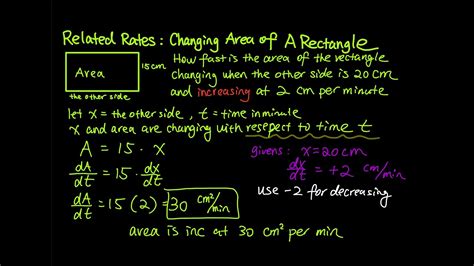 Related Rates: Changing Area of A Rectangle
Area
15cm
the other side
How fast is the area of the rectangle
changing when the other side is 20 cm
and increasing at 2 cm per minute
let x = the other side , t = time in minute
x and area are changing with resepect to time t
A = 15 · x
dA/dt = 15 · dx/dt
dA/dt = 15 (2) = 30 cm²/min
givens: x = 20 cm
dx/dt = +2 cm/min
use -2 for decreasing
area is inc at 30 cm² per min